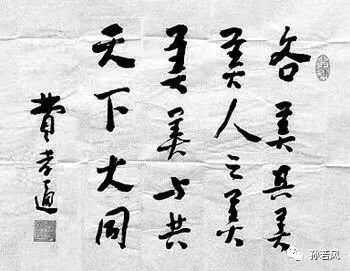 各美其美
美人之美
美美与共
天下大同
费孝通
孙若风